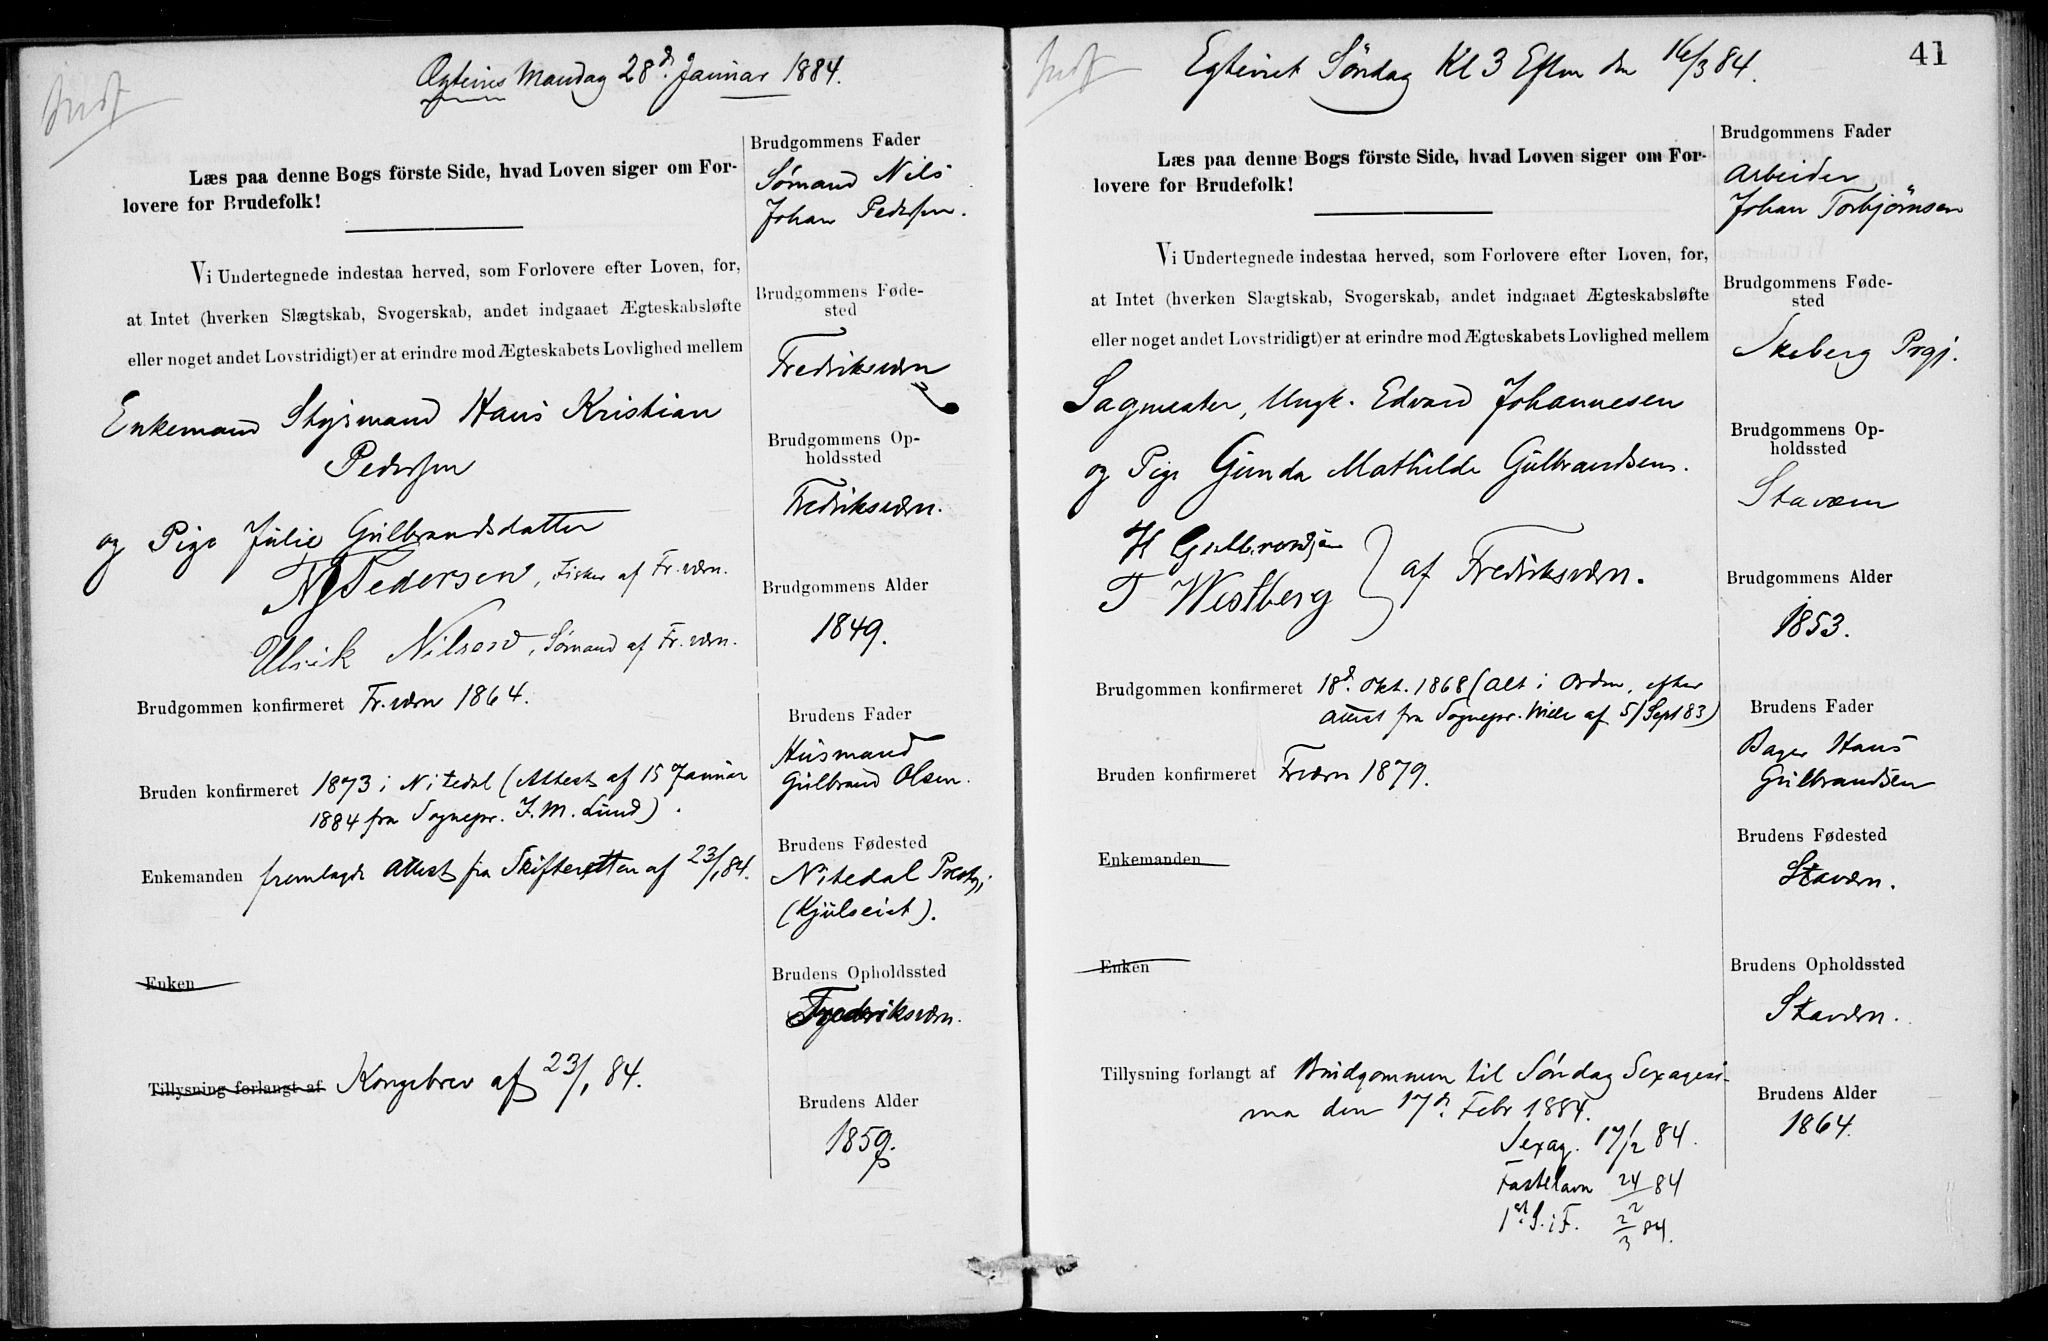 Indf
Ægtevies Mandag 28d. Januar 1884.
Læs paa denne Bogs förste Side, hvad Loven siger om For-
lovere for Brudefolk!
Vi Undertegnede indestaa herved, som Forlovere efter Loven, for,
at Intet (hverken Slægtskab, Svogerskab, andet indgaaet Ægteskabsløfte
eller noget andet Lovstridigt) er at erindre mod Ægteskabets Lovlighed mellem
Enkemand Styrmand Hans Kristian
Pedersen
og Pige Julie Gulbrandsdatter
NJPedersen, Fisker af Fr.værn.
Ulrik Nilsen, Sømand af Fr.værn.
Brudgommen konfirmeret Fr.værn 1864.
Bruden konfirmeret 1873 i Nitedal (Attest af 15 Januar
1884 fra Sognepr. J. M. Lund).
Enkemanden fremlagde Attest fra Skifteretten af 23/1 84.
Enken
Tillysning forlangt af Kongebrev af 23/1 84.
Brudgommens Fader
Sømand Nils
Johan Pedersen.
Brudgommens Føde-
sted
Fredriksværn
Brudgommens Op-
holdssted
Fredriksværn.
Brudgommens Alder
1849.
Brudens Fader
Husmand
Gulbrand Olsen.
Brudens Fødested
Nitedal Præstgj.
(Kjulseiet).
Brudens Opholdssted
Fredriksværn.
Brudens Alder
1859.
Indf
Egteviet Søndag Kl 3 Efterm den 16/3 84.
41
Læs paa denne Bogs förste Side, hvad Loven siger om For-
lovere for Brudefolk!
Vi Undertegnede indestaa herved, som Forlovere efter Loven, for,
at Intet (hverken Slægtskab, Svogerskab, andet indgaaet Ægteskabsløfte
eller noget andet Lovstridigt) er at erindre mod Ægteskabets Lovlighed mellem
Sagmester, Ungk. Edvard Johannesen
og Pige Gunda Mathilde Gulbrandsen.
H Gulbrandsen
T Westberg
af Fredriksværn.
Brudgommen konfirmeret 18d. Okt. 1868 (Alt i Orden, efter
Attest fra Sognepr. af 5/Sept 83)
Bruden konfirmeret Frværn 1879.
Enkemanden
Enken
Tillysning forlangt af Brudgommen til Søndag Sexagesi-
ma den 17d. Febr 1884.
Sexag. 17/2 84.
Fastelavn 24/2 84
1st S. i F. 2/3 84.
Brudgommens Fader
Arbeider
Johan Torbjørnsen
Brudgommens Føde-
sted
Skeberg Prgj.
Brudgommens Op-
holdssted
Staværn
Brudgommens Alder
1853.
Brudens Fader
Bager Hans
Gulbrandsen
Brudens Fødested
Staværn.
Brudens Opholdssted
Staværn.
Brudens Alder
1864.